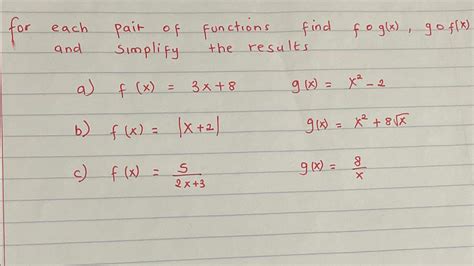 for each pair of functions find fog(x), gof(x)
and simplify the results
a) f(x) = 3x+8 g(x) = x² - 2
b) f(x) = |x+2| g(x) = x² + 8√x
c) f(x) = 5/(2x+3) g(x) = 8/x